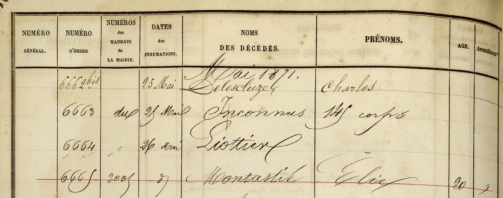 NUMÉRO GÉNÉRAL. NUMÉRO D'ORDRE NUMÉROS des MANDATS de LA MAIRIE. DATES des INHUMATIONS. NOMS DES DÉCÉDÉS. PRÉNOMS. AGE.
Mai 1871.
6662 bis 25 Mai Delescluze Charles
6663 du 25 Mai Inconnus 145 corps
6664 " 26 Piottier
6665 27 Elie 20